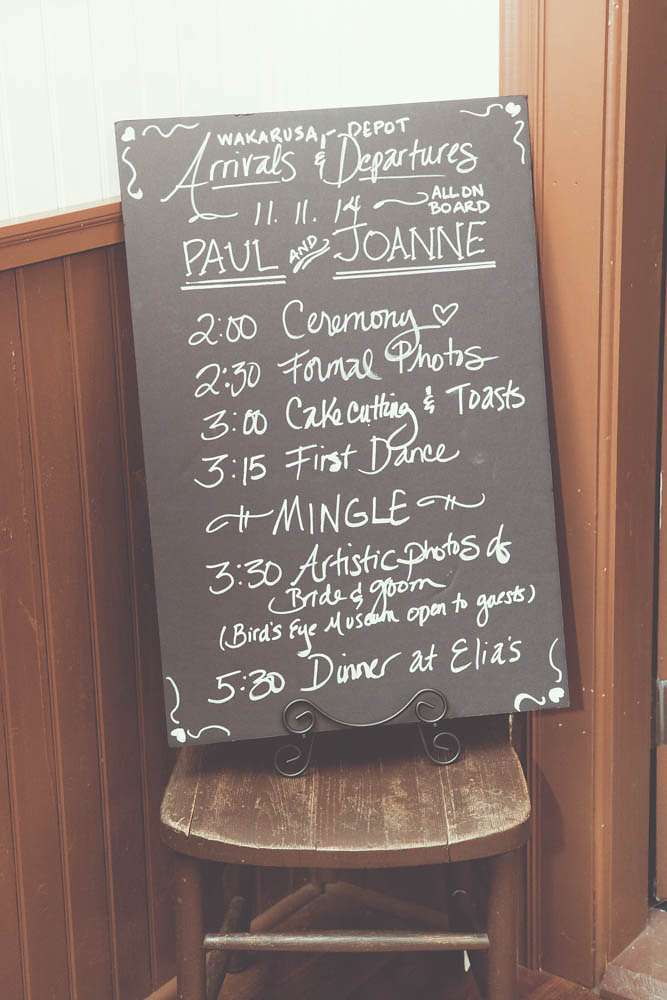 WAKARUSA DEPOT
Arrivals & Departures
11. 11. 14 ALL ON BOARD
PAUL AND JOANNE
2:00 Ceremony
2:30 Formal Photos
3:00 Cake cutting & Toasts
3:15 First Dance
MINGLE
3:30 Artistic photos of
Bride & groom
(Bird's Eye Museum open to guests)
5:30 Dinner at Elia's